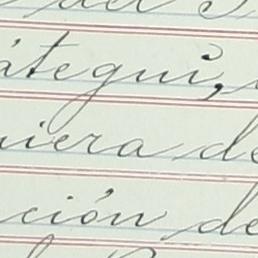 del
átegui,
niera de
ción de